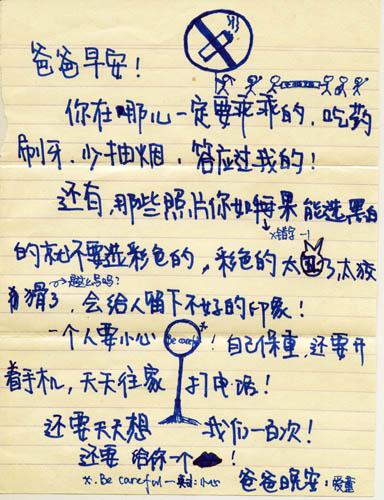 爸爸早安!
你在哪儿一定要乖乖的,吃药
刷牙,少抽烟,答应过我的!
还有,那些照片你如果能选黑白
*错字-1
的就不要选彩色的,彩色的太丑了,太狡
猾了,会给人留下不好的印象!
一个人要小心 Be careful* !自己保重,还要开
着手机,天天往家打电话!
还要天天想我们一百次!
还要给你一个 !
*. Be careful
爸爸晚安: